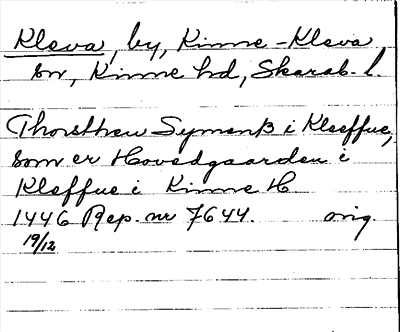 Kleva, by, Kinne-Kleva
sn, Kinne hd, Skarab. l.
Thorsthen Symonß i Kleffue,
som er Hovedgaarden i
Kleffue i Kinne H
1446 Rep. nr 7644. orig.
19/12